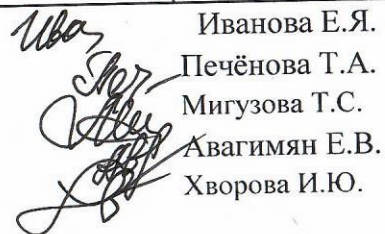 Иванова Е.Я.
Печёнова Т.А.
Мигузова Т.С.
Авагимян Е.В.
Хворова И.Ю.